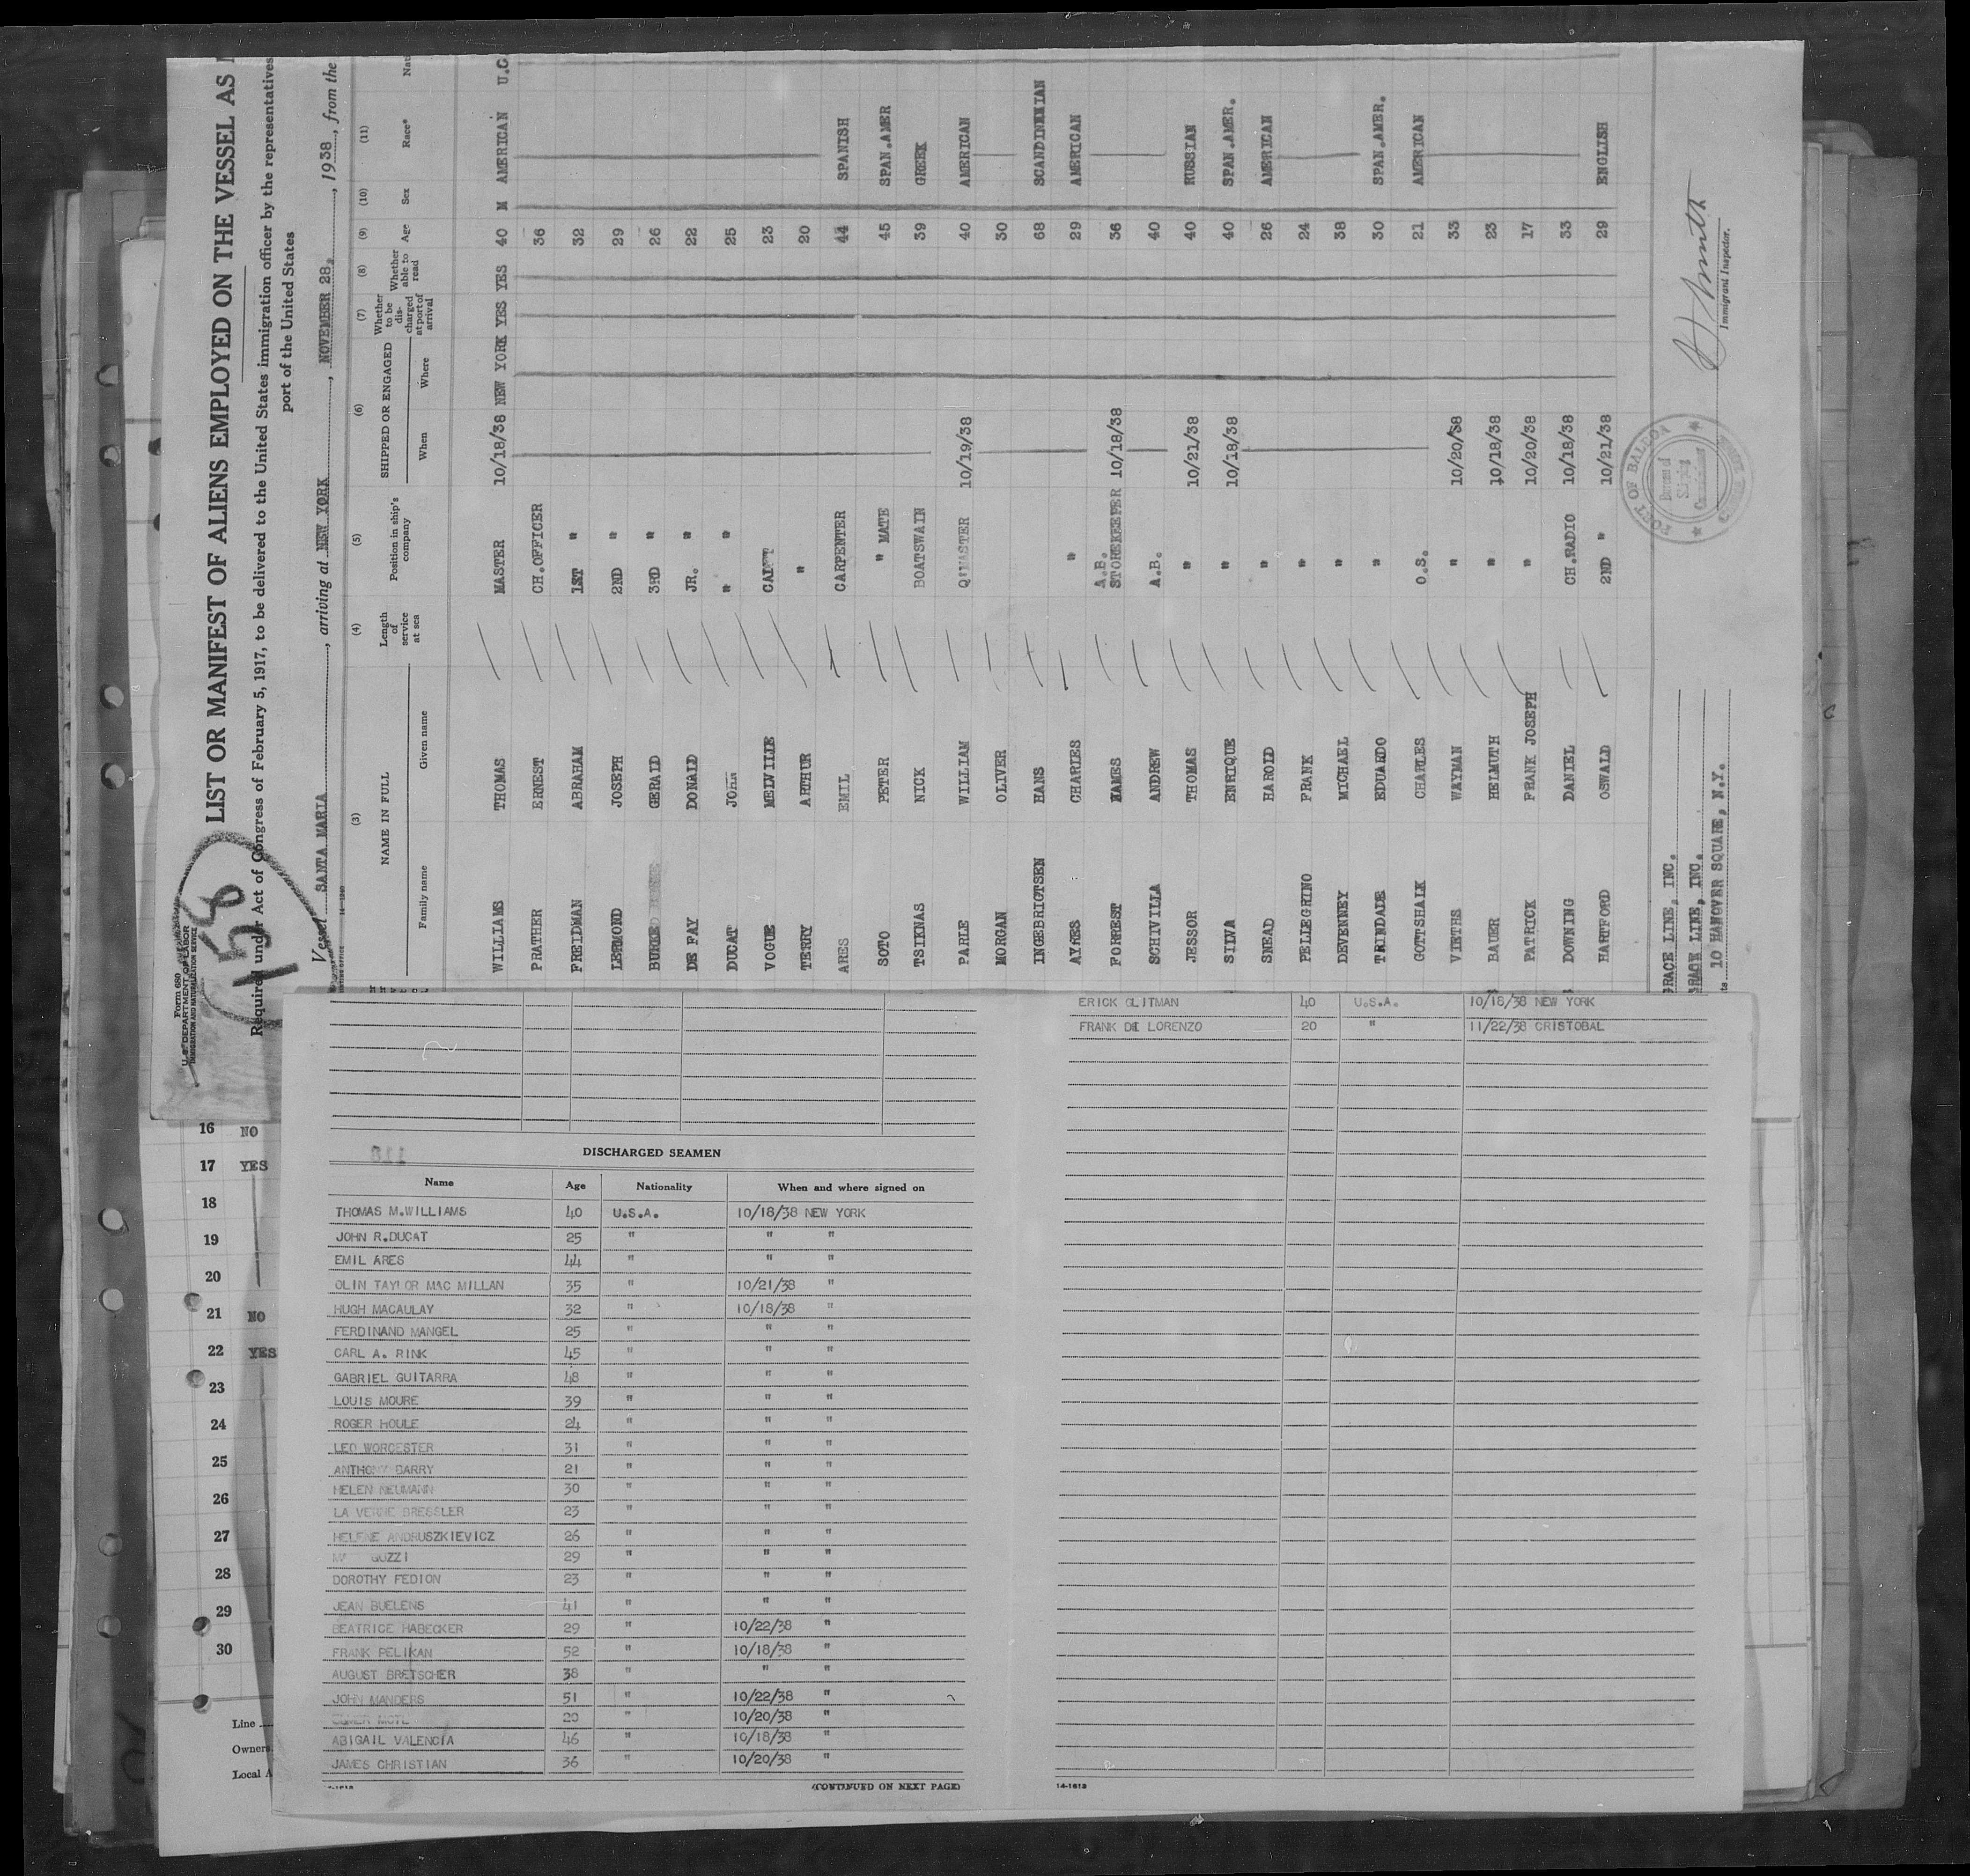 Form 680
U. S. DEPARTMENT OF LABOR
IMMIGRATION AND NATURALIZATION SERVICE
158
LIST OR MANIFEST OF ALIENS EMPLOYED ON THE VESSEL AS
Required under Act of Congress of February 5, 1917, to be delivered to the United States immigration officer by the representatives
port of the United States
Vessel SANTA MARIA, arriving at NEW YORK, NOVEMBER 28, 1938, from the
(3) (4) (5) (6) (7) (8) (9) (10) (11)
NAME IN FULL Length of service at sea Position in ship's company SHIPPED OR ENGAGED Whether to be discharged at port of arrival Whether able to read Age Sex Race* Nat
Family name Given name When Where
WILLIAMS THOMAS MASTER 10/18/38 NEW YORK YES YES 40 M AMERICAN U.S
PRATHER ERNEST CH.OFFICER 36
FREIDMAN ABRAHAM 1ST " 32
LERMOND JOSEPH 2ND " 29
BURKE GERALD 3RD " 26
DE FAY DONALD JR. " 22
DUCAT JOHN " " 25
VOGUE MELVILLE CADET 23
TERRY ARTHUR " 20
ARES EMIL CARPENTER 44 SPANISH
SOTO PETER " MATE 45 SPAN.AMER
TSIKNAS NICK BOATSWAIN 39 GREEK
PARLE WILLIAM Q'MASTER 10/19/38 40 AMERICAN
MORGAN OLIVER 30
INGEBRIGTSEN HANS 68 SCANDINAVIAN
AYRES CHARLES " 29 AMERICAN
FORREST JAMES A.B. STOREKEEPER 10/18/38 36
SCHIVILLA ANDREW A.B. 40
JESSOR THOMAS " 10/21/38 40 RUSSIAN
SILVA ENRIQUE " 10/18/38 40 SPAN.AMER.
SNEAD HAROLD " 26 AMERICAN
PELLEGRINO FRANK " 24
DEVENNEY MICHAEL " 38
TRINDADE EDUARDO " 30 SPAN.AMER.
GOTTSHALK CHARLES O.S. 21 AMERICAN
VIETHS WAYMAN " 10/20/38 33
BAUER HELMUTH " 10/18/38 23
PATRICK FRANK JOSEPH " 10/20/38 17
DOWNING DANIEL CH.RADIO 10/18/38 33
HARTFORD OSWALD 2ND " 10/21/38 29 ENGLISH
GRACE LINE, INC.
GRACE LINE, INC.
10 HANOVER SQUARE, N.Y.
PORT OF BALBOA
Bureau of Shipping Commissioner
Immigrant Inspector.
16 NO
17 YES
18
19
20
21 NO
22 YES
23
24
25
26
27
28
29
30
Line
Owners
Local A
DISCHARGED SEAMEN
Name Age Nationality When and where signed on
THOMAS M.WILLIAMS 40 U.S.A. 10/18/38 NEW YORK
JOHN R.DUCAT 25 " " "
EMIL ARES 44 " " "
OLIN TAYLOR MAC MILLAN 35 " 10/21/38 "
HUGH MACAULAY 32 " 10/18/38 "
FERDINAND MANGEL 25 " " "
CARL A. RINK 45 " " "
GABRIEL GUITARRA 48 " " "
LOUIS MOURE 39 " " "
ROGER HOULE 24 " " "
LEO WORCESTER 31 " " "
ANTHONY BARRY 21 " " "
HELEN NEUMANN 30 " " "
LA VERNE BRESSLER 23 " " "
HELENE ANDRUSZKIEVICZ 26 " " "
GUZZI 29 " " "
DOROTHY FEDION 23 " " "
JEAN BUELENS 41 " " "
BEATRICE HABECKER 29 " 10/22/38 "
FRANK PELIKAN 52 " 10/18/38 "
AUGUST BRETSCHER 38 " " "
JOHN MANDERS 51 " 10/22/38 "
ELMER MOTL 20 " 10/20/38 "
ABIGAIL VALENCIA 46 " 10/18/38 "
JAMES CHRISTIAN 36 " 10/20/38 "
(CONTINUED ON NEXT PAGE)
ERICK GLITMAN 40 U.S.A. 10/18/38 NEW YORK
FRANK DE LORENZO 20 " 11/22/38 CRISTOBAL
14-1612